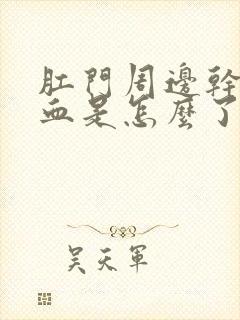 肛門周邊幹
血是怎麼了
吳天軍